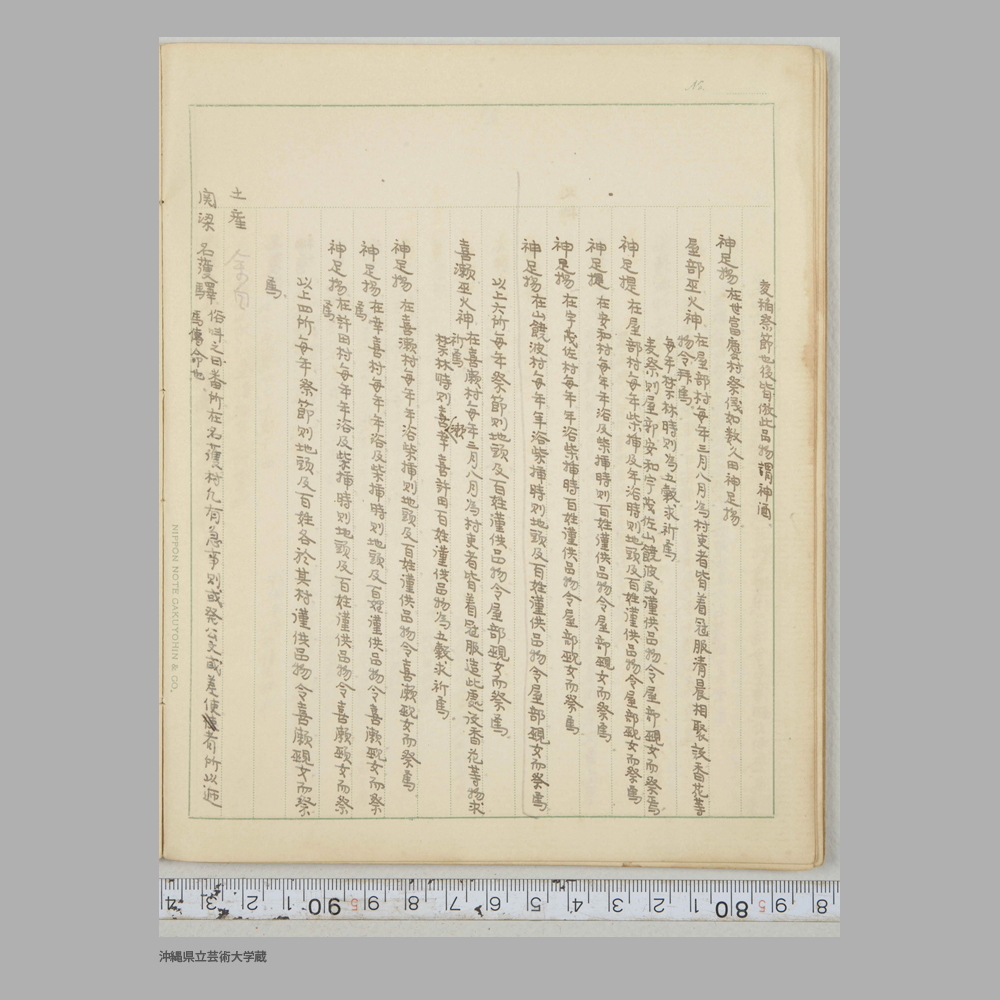 麦稲祭節也後皆倣此品物謂神酒
神足揚 在世富慶村祭儀如数久田神足揚
屋部巫火神 在屋部村毎年三月八月為村吏者皆着冠服清晨相聚設香花等
物令拜焉
毎年禁林時則為五穀求祈焉
麦祭則屋部安和宇茂佐山饒波民謹供品物令屋部覡女而祭焉
神足揚 在屋部村毎年柴揷及年浴時則地頭及百姓謹供品物令屋部覡女而祭焉
神足揚 在安和村毎年年浴及柴揷時則百姓謹供品物令屋部覡女而祭焉
神足揚 在宇茂佐村毎年年浴柴揷時百姓謹供品物令屋部覡女而祭焉
神足揚 在山饒波村毎年年浴柴揷時則地頭及百姓謹供品物令屋部覡女而祭焉
以上六所毎年祭節則地頭及百姓謹供品物令屋部覡女而祭焉
喜瀬巫火神 在喜瀬村毎年三月八月為村吏者皆着冠服造此處設香花等物求
祈焉
禁林時則喜瀬幸喜許田百姓謹供品物為五穀求祈焉
神足揚 在喜瀬村毎年年浴柴揷則地頭及百姓謹供品物令喜瀬覡女而祭焉
神足揚 在幸喜村毎年年浴及柴揷時則地頭及百姓謹供品物令喜瀬覡女而祭
焉
神足揚 在許田村毎年年浴及柴揷時則地頭及百姓謹供品物令喜瀬覡女而祭
焉
以上四所毎年祭節則地頭及百姓各於其村謹供品物令喜瀬覡女而祭
焉
土産
関梁 名護驛 俗呼之曰番所在名護村凡有急事則或発公文或差使者所以逓
馬傳命也
No.
NIPPON NOTE GAKUYOHIN & CO.
4 3 2 1 90 9 8 7 6 5 4 3 2 1 80 9 8
沖縄県立芸術大学蔵